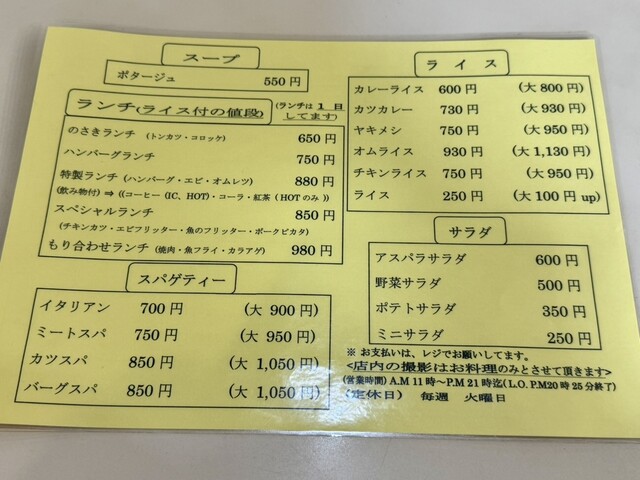 スープ
ポタージュ 550円
ランチ(ライス付の値段)
(ランチは1日
してます)
のさきランチ (トンカツ・コロッケ) 650円
ハンバーグランチ 750円
特製ランチ (ハンバーグ・エビ・オムレツ) 880円
(飲み物付) ⇒ ((コーヒー (IC、HOT)・コーラ・紅茶 ( HOT のみ ))
スペシャルランチ 850円
(チキンカツ・エビフリッター・魚のフリッター・ポークピカタ)
もり合わせランチ (焼肉・魚フライ・カラアゲ) 980円
スパゲティー
イタリアン 700円 (大 900円)
ミートスパ 750円 (大 950円)
カツスパ 850円 (大 1,050円)
バーグスパ 850円 (大 1,050円)
ライス
カレーライス 600円 (大 800円)
カツカレー 730円 (大 930円)
ヤキメシ 750円 (大 950円)
オムライス 930円 (大 1,130円)
チキンライス 750円 (大 950円)
ライス 250円 (大 100円 up)
サラダ
アスパラサラダ 600円
野菜サラダ 500円
ポテトサラダ 350円
ミニサラダ 250円
※ お支払いは、レジでお願いしてます。
<店内の撮影はお料理のみとさせて頂きます>
(営業時間) A.M 11時〜P.M 21時迄(L.O. P.M20時25分終了)
(定休日) 毎週 火曜日